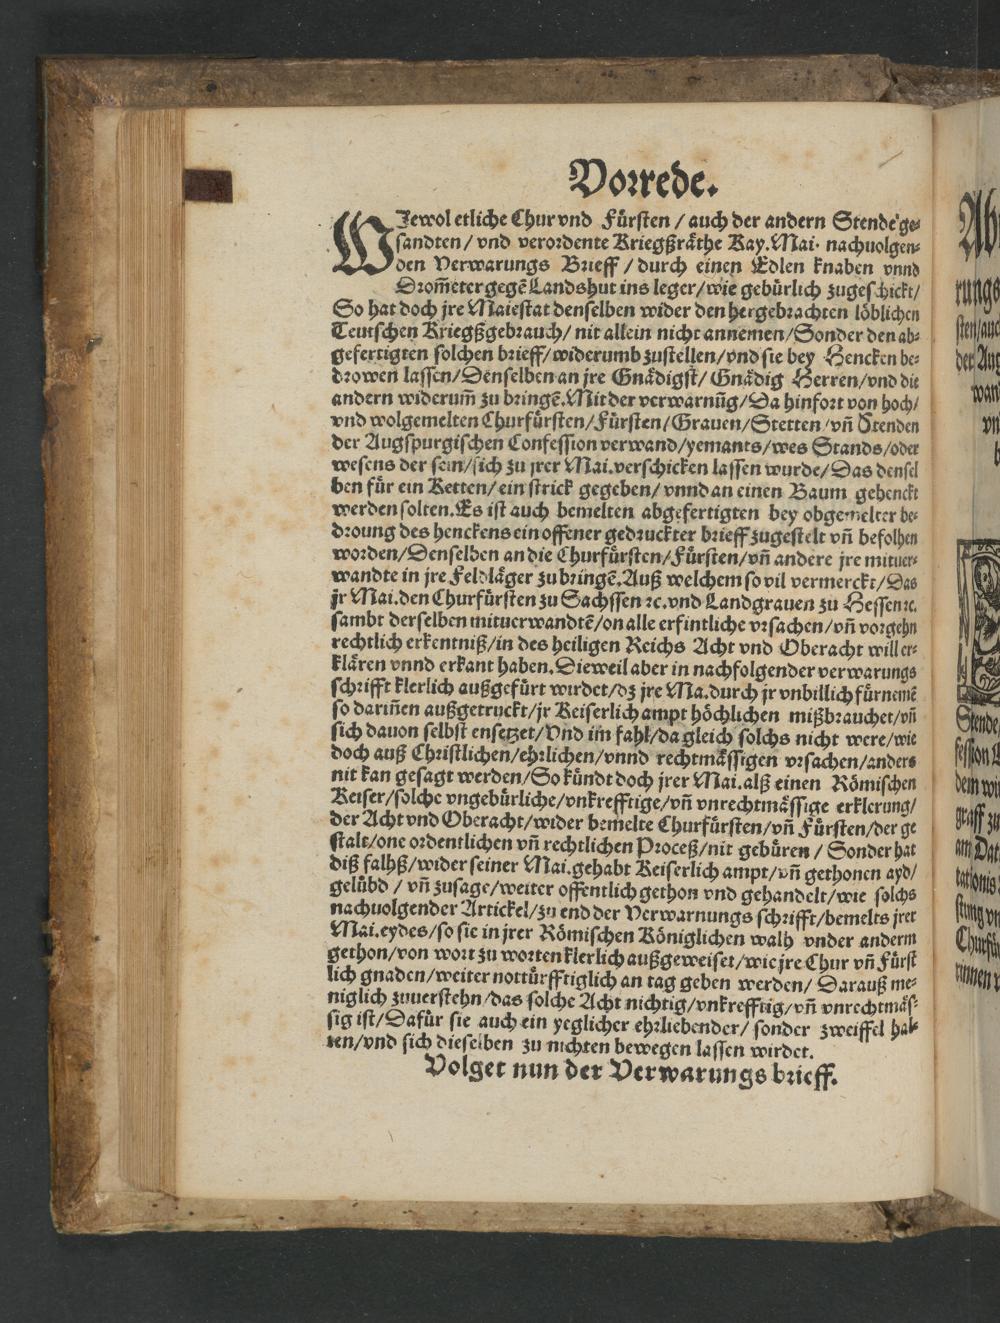 Vorrede.
WJewol etliche Chur vnd Fürsten / auch der andern Stende ge⸗
sandten / vnd verordente Kriegßräthe Kay. Mai. nachuolgen⸗
den Verwarungs Brieff / durch einen Edlen knaben vnnd
Drom̃eter gegẽ Landshut ins leger / wie gebürlich zugeschickt /
So hat doch jre Maiestat denselben wider den hergebrachten löblichen
Teutschen Kriegßgebrauch / nit allein nicht annemen / Sonder den ab⸗
gefertigten solchen brieff / widerumb zustellen / vnd sie bey Hencken be⸗
drowen lassen / Denselben an jre Gnädigst / Gnädig Herren / vnd die
andern widerum̃ zu bringẽ. Mit der verwarnũg / Da hinfort von hoch /
vnd wolgemelten Churfürsten / Fürsten / Grauen / Stetten / vñ Stenden
der Augspurgischen Confession verwand / yemants / wes Stands / oder
wesens der sein / sich zu jrer Mai. verschicken lassen wurde / Das densel
ben für ein Ketten / ein strick gegeben / vnnd an einen Baum gehenckt
werden solten. Es ist auch bemelten abgefertigten bey obgemelter be⸗
droung des henckens ein offener gedruckter brieff zugestelt vñ befolhen
worden / Denselben an die Churfürsten / Fürsten / vñ andere jre mituer⸗
wandte in jre Feldläger zu bringẽ. Auß welchem so vil vermerckt / Das
jr Mai. den Churfürsten zu Sachssen ꝛc. vnd Landgrauen zu Hessen ꝛc.
sambt derselben mituerwandtẽ / on alle erfintliche vrsachen / vñ vorgehn
rechtlich erkentniß / in des heiligen Reichs Acht vnd Oberacht will er⸗
klären vnnd erkant haben. Dieweil aber in nachfolgender verwarungs
schrifft klerlich außgefürt wirdet / dz jre Ma. durch jr vnbillich fürnemẽ
so dariñen außgetruckt / jr Keiserlich ampt höchlichen mißbrauchet / vñ
sich dauon selbst ensetzet / Vnd im fahl / da gleich solchs nicht were / wie
doch auß Christlichen / ehrlichen / vnnd rechtmässigen vrsachen / anders
nit kan gesagt werden / So kündt doch jrer Mai. alß einen Römischen
Keiser / solche vngebürliche / vnkrefftige / vñ vnrechtmässige erklerung /
der Acht vnd Oberacht / wider bemelte Churfürsten / vñ Fürsten / der ge
stalt / one ordentlichen vñ rechtlichen Proceß / nit gebüren / Sonder hat
diß falhß / wider seiner Mai. gehabt Keiserlich ampt / vñ gethonen ayd /
gelübd / vñ zusage / weiter offentlich gethon vnd gehandelt / wie solchs
nachuolgender Artickel / zu end der Verwarnungs schrifft / bemelts jrer
Mai. eydes / so sie in jrer Römischen Königlichen walh vnder anderm
gethon / von wort zu worten klerlich außgeweiset / wie jre Chur vñ Fürst
lich gnaden / weiter nottürfftiglich an tag geben werden / Darauß me⸗
niglich zuuerstehn / das solche Acht nichtig / vnkrefftig / vñ vnrechtmäs⸗
sig ist / Dafür sie auch ein yeglicher ehrliebender / sonder zweiffel hal⸗
ten / vnd sich dieselben zu nichten bewegen lassen wirdet.
Volget nun der Verwarungs brieff.